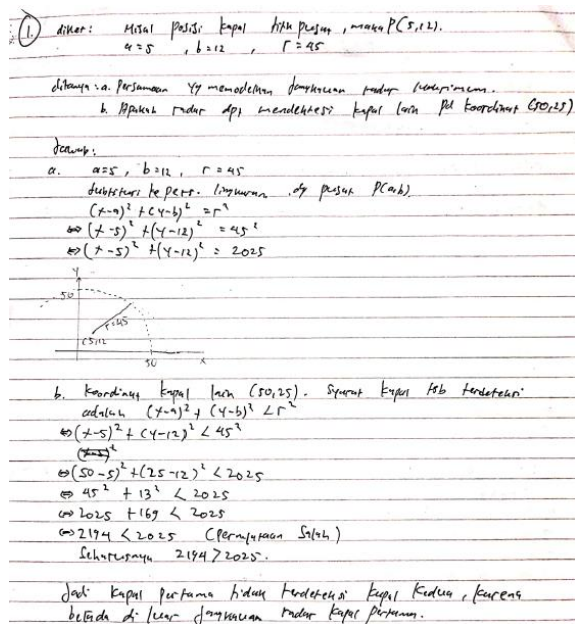 1. diket: Misal posisi kapal titik pusat, maka P(5,12).
a=5 , b=12 , r=45
ditanya: a. Persamaan yg memodelkan jangkauan radar maksimum.
b. Apakah radar dpt mendeteksi kapal lain pd koordinat (50,25)
Jawab:
a. a=5, b=12, r=45
Substitusi ke pers. lingkaran dg pusat P(a,b)
(x-a)² + (y-b)² = r²
⇔ (x-5)² + (y-12)² = 45²
⇔ (x-5)² + (y-12)² = 2025
y
50
r=45
(5,12
50
x
b. Koordinat kapal lain (50,25). Syarat kapal tsb terdeteksi
adalah (x-a)² + (y-b)² < r²
⇔ (x-5)² + (y-12)² < 45²
(x-5)²
⇔ (50-5)² + (25-12)² < 2025
⇔ 45² + 13² < 2025
⇔ 2025 + 169 < 2025
⇔ 2194 < 2025 (Pernyataan Salah)
Seharusnya 2194 > 2025.
Jadi kapal pertama tidak terdeteksi kapal kedua, karena
berada di luar jangkauan radar kapal pertama.